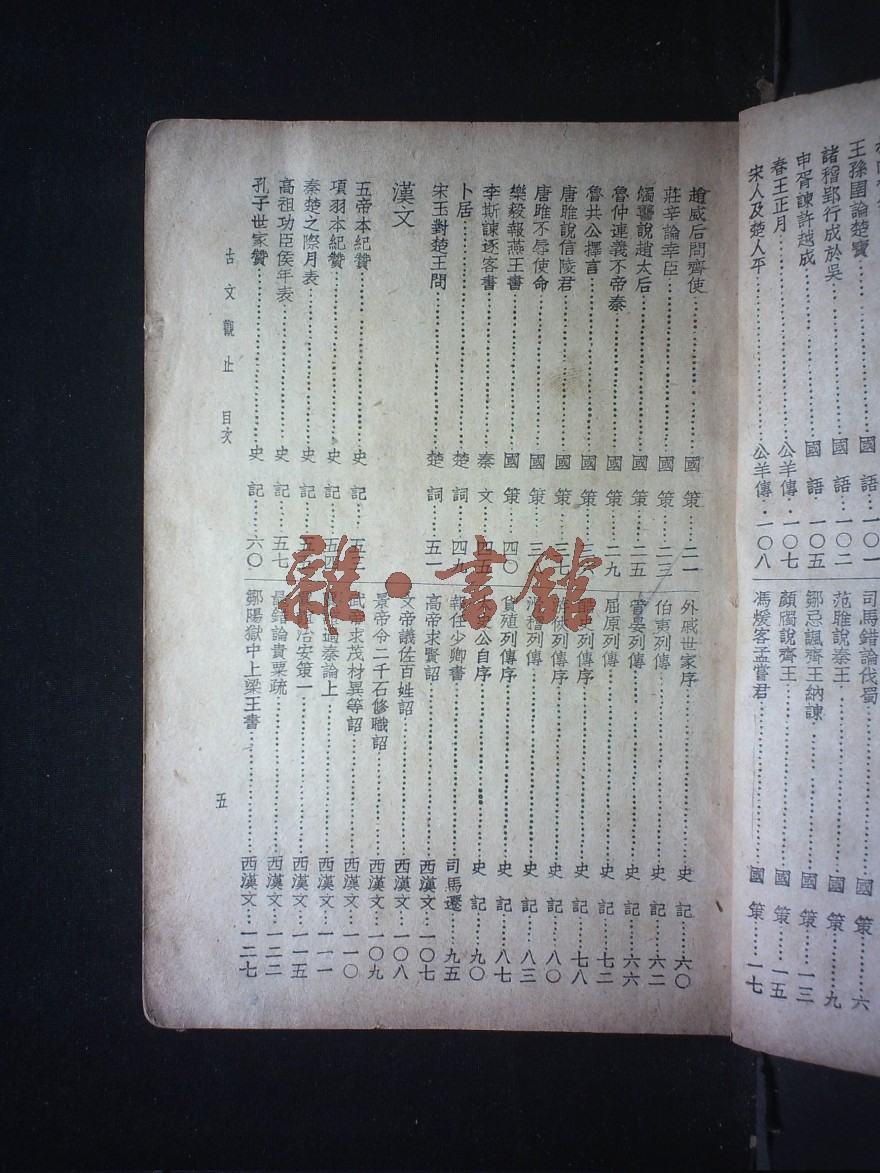 王孫圉論楚寶
國語
一〇一
諸稽郢行成於吳
國語
一〇二
申胥諫許越成
國語
一〇五
春王正月
公羊傳
一〇七
宋人及楚人平
公羊傳
一〇八
司馬錯論伐蜀
國策
六
范雎說秦王
國策
九
鄒忌諷齊王納諫
國策
一三
顏斶說齊王
國策
一五
馮煖客孟嘗君
國策
一七
趙威后問齊使
國策
二一
莊辛論幸臣
國策
二三
觸讋說趙太后
國策
二五
魯仲連義不帝秦
國策
二九
魯共公擇言
國策
唐雎說信陵君
國策
三七
唐雎不辱使命
國策
三八
樂毅報燕王書
國策
四〇
李斯諫逐客書
秦文
四五
卜居
楚詞
四九
宋玉對楚王問
楚詞
五一
漢文
五帝本紀贊
史記
項羽本紀贊
史記
五四
秦楚之際月表
史記
高祖功臣侯年表
史記
五七
孔子世家贊
史記
六〇
外戚世家序
史記
六〇
伯夷列傳
史記
六二
管晏列傳
史記
六六
屈原列傳
史記
七二
酷吏列傳序
史記
七八
游俠列傳序
史記
八〇
滑稽列傳
史記
八三
貨殖列傳序
史記
八七
太史公自序
史記
九〇
報任少卿書
司馬遷
九五
高帝求賢詔
西漢文
一〇七
文帝議佐百姓詔
西漢文
一〇八
景帝令二千石修職詔
西漢文
一〇九
武帝求茂材異等詔
西漢文
一一〇
過秦論上
西漢文
一一一
治安策一
西漢文
一一五
鼂錯論貴粟疏
西漢文
一二二
鄒陽獄中上梁王書
西漢文
一二七
古文觀止 目次
五
雜·書館